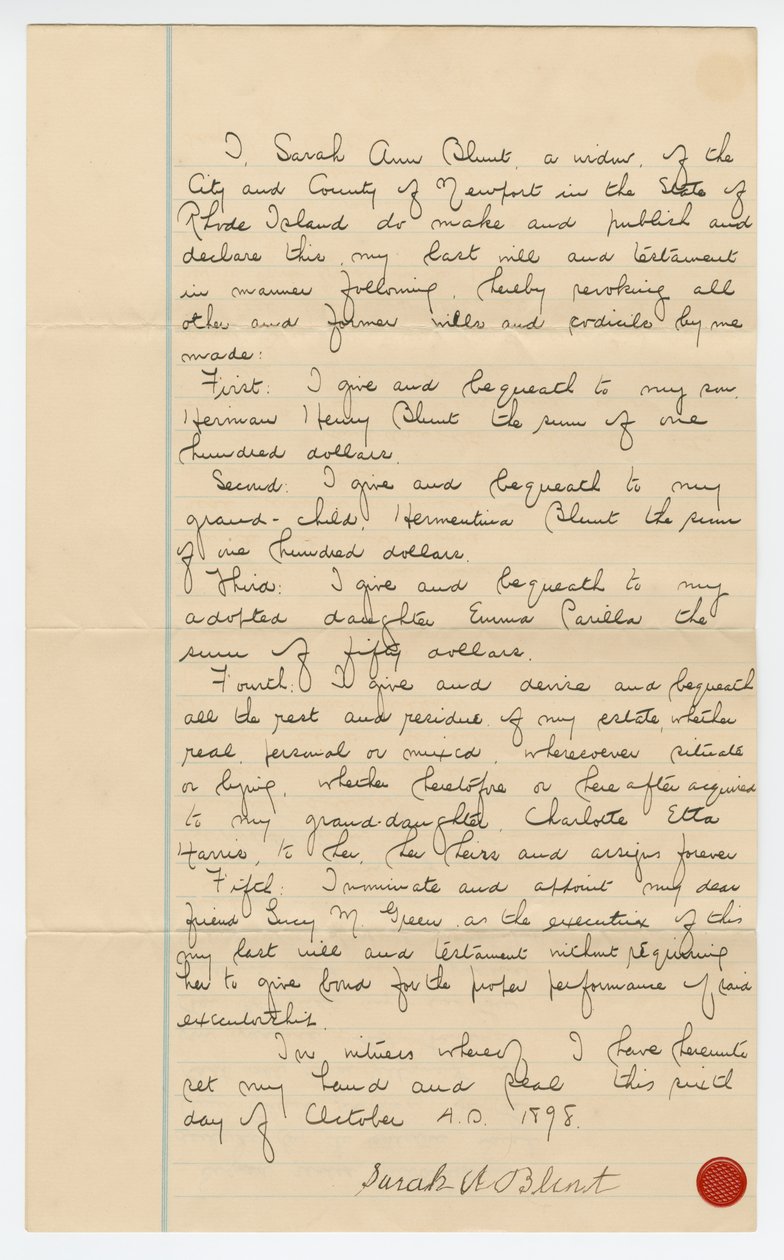 I, Sarah Ann Blunt, a widow, of the
City and County of Newport in the State of
Rhode Island do make and publish and
declare this, my last will and testament
in manner following, hereby revoking all
other and former wills and codicils by me
made:
First: I give and bequeath to my son,
Herman Henry Blunt the sum of one
hundred dollars.
Second: I give and bequeath to my
grand-child, Hermentina Blunt the sum
of one hundred dollars.
Third: I give and bequeath to my
adopted daughter Emma Parilla the
sum of fifty dollars.
Fourth: I give and devise and bequeath
all the rest and residue of my estate, whether
real, personal or mixed, wheresoever situate
or lying, whether heretofore or hereafter acquired
to my grand-daughter, Charlotte Etta
Harris, to her, her heirs and assigns forever
Fifth: I nominate and appoint my dear
friend Lucy M. Green as the executrix of this
my last will and testament without requiring
her to give bond for the proper performance of said
executorship.
In witness whereof I have hereunto
set my hand and seal this sixth
day of October A.D. 1898.
Sarah A Blunt